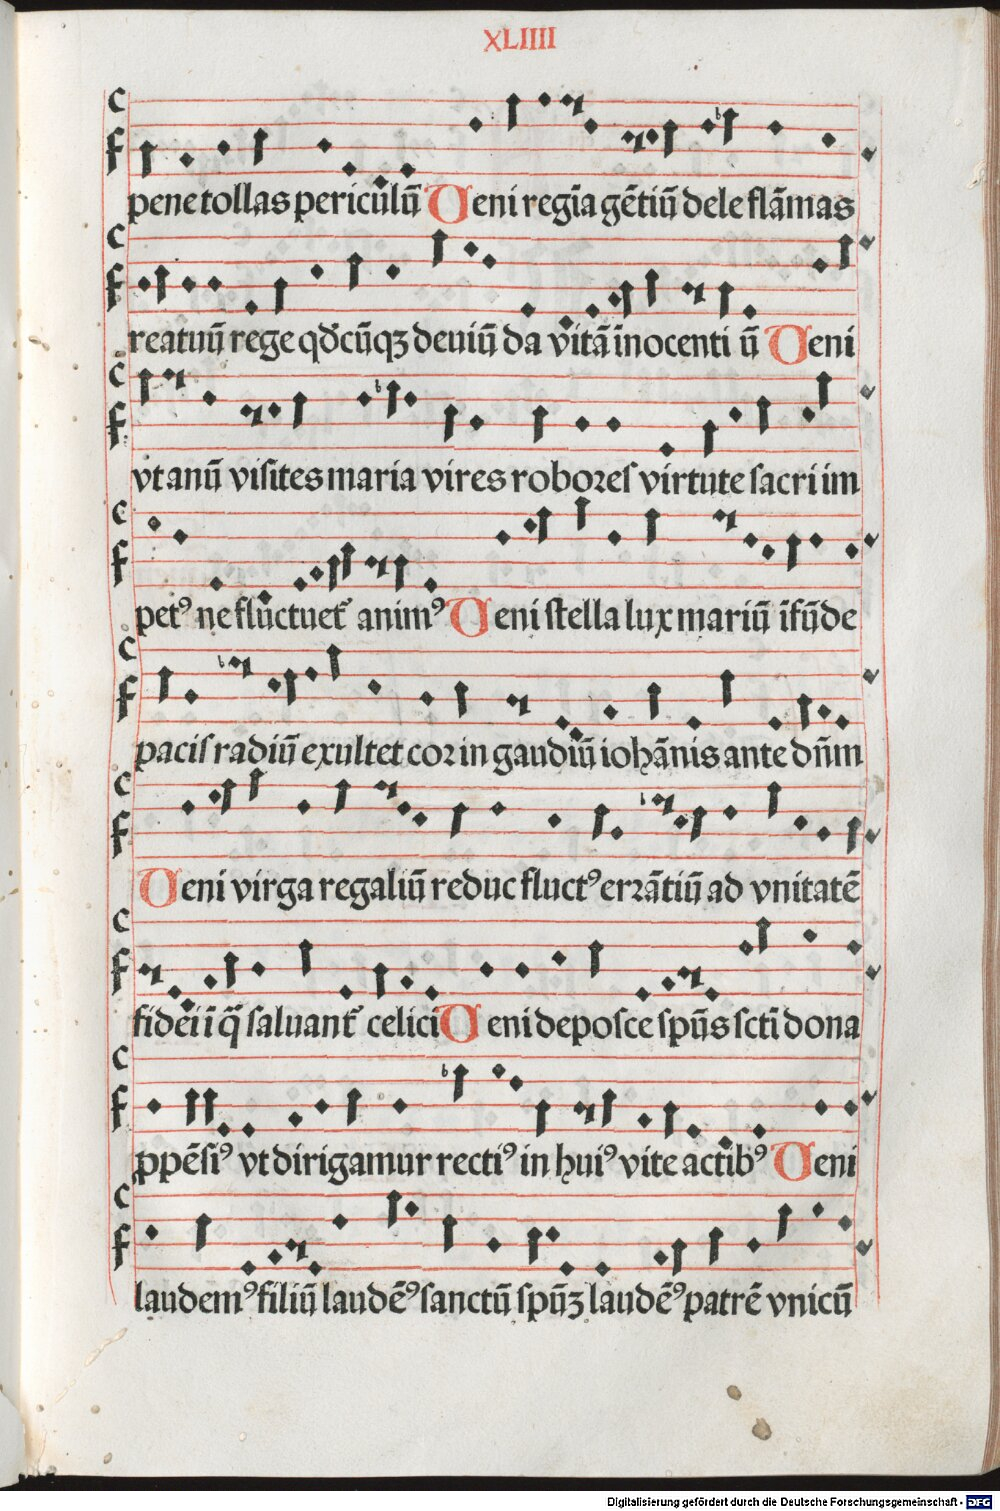 XLIIII
pene tollas periculū Ueni regīa gētiū dele flāmas
reatuū rege qđcūqꝫ deuiū da vitā īnocenti ū Ueni
vt anū visites maria vires robores virtute sacri im
petꝰ ne fluctuet᷑ animꝰ Ueni stella lux mariū īfūde
pacis radiū exultet cor in gaudiū iohānis ante dn̄m
Ueni virga regaliū reduc fluctꝰ errātiū ad vnitatē
fidei ī q̄ saluant᷑ celici Ueni deposce spūs sctī dona
ꝓpēsiꝰ vt dirigamur rectiꝰ in huiꝰ vite actibꝰ Ueni
laudemꝰ filiū laudēꝰ sanctū spūꝫ laudēꝰ patrē vnicū
Digitalisierung gefördert durch die Deutsche Forschungsgemeinschaft - DFG